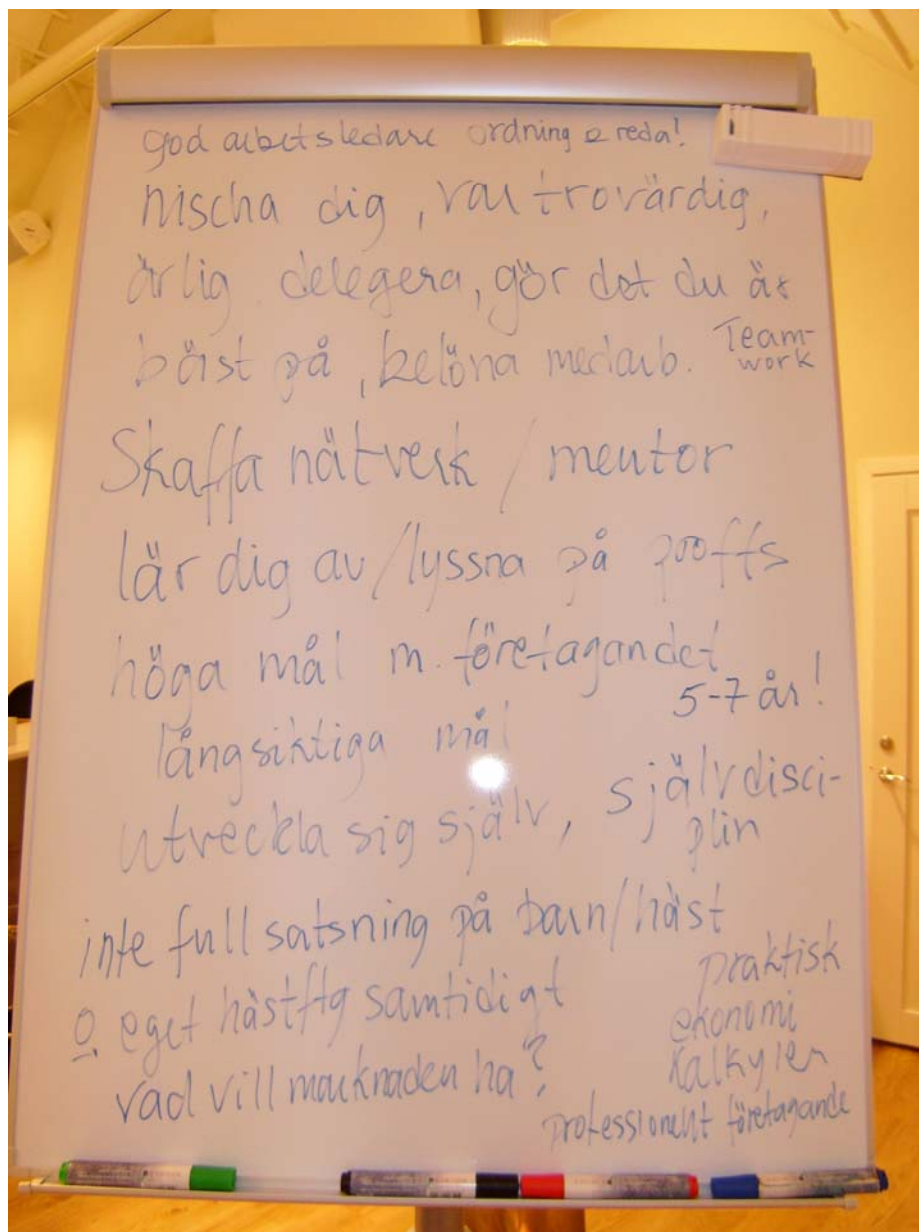 god arbetsledare ordning o reda!
nischa dig, var trovärdig,
ärlig. delegera, gör det du är
bäst på, belöna medarb. Team-
work
Skaffa nätverk / mentor
lär dig av/lyssna på proffs
höga mål m. företagandet
5-7 år!
långsiktiga mål
utveckla sig själv, självdisci-
plin
inte full satsning på barn/häst
o eget hästftg samtidigt
vad vill marknaden ha?
praktisk
ekonomi
kalkyler
professionellt företagande